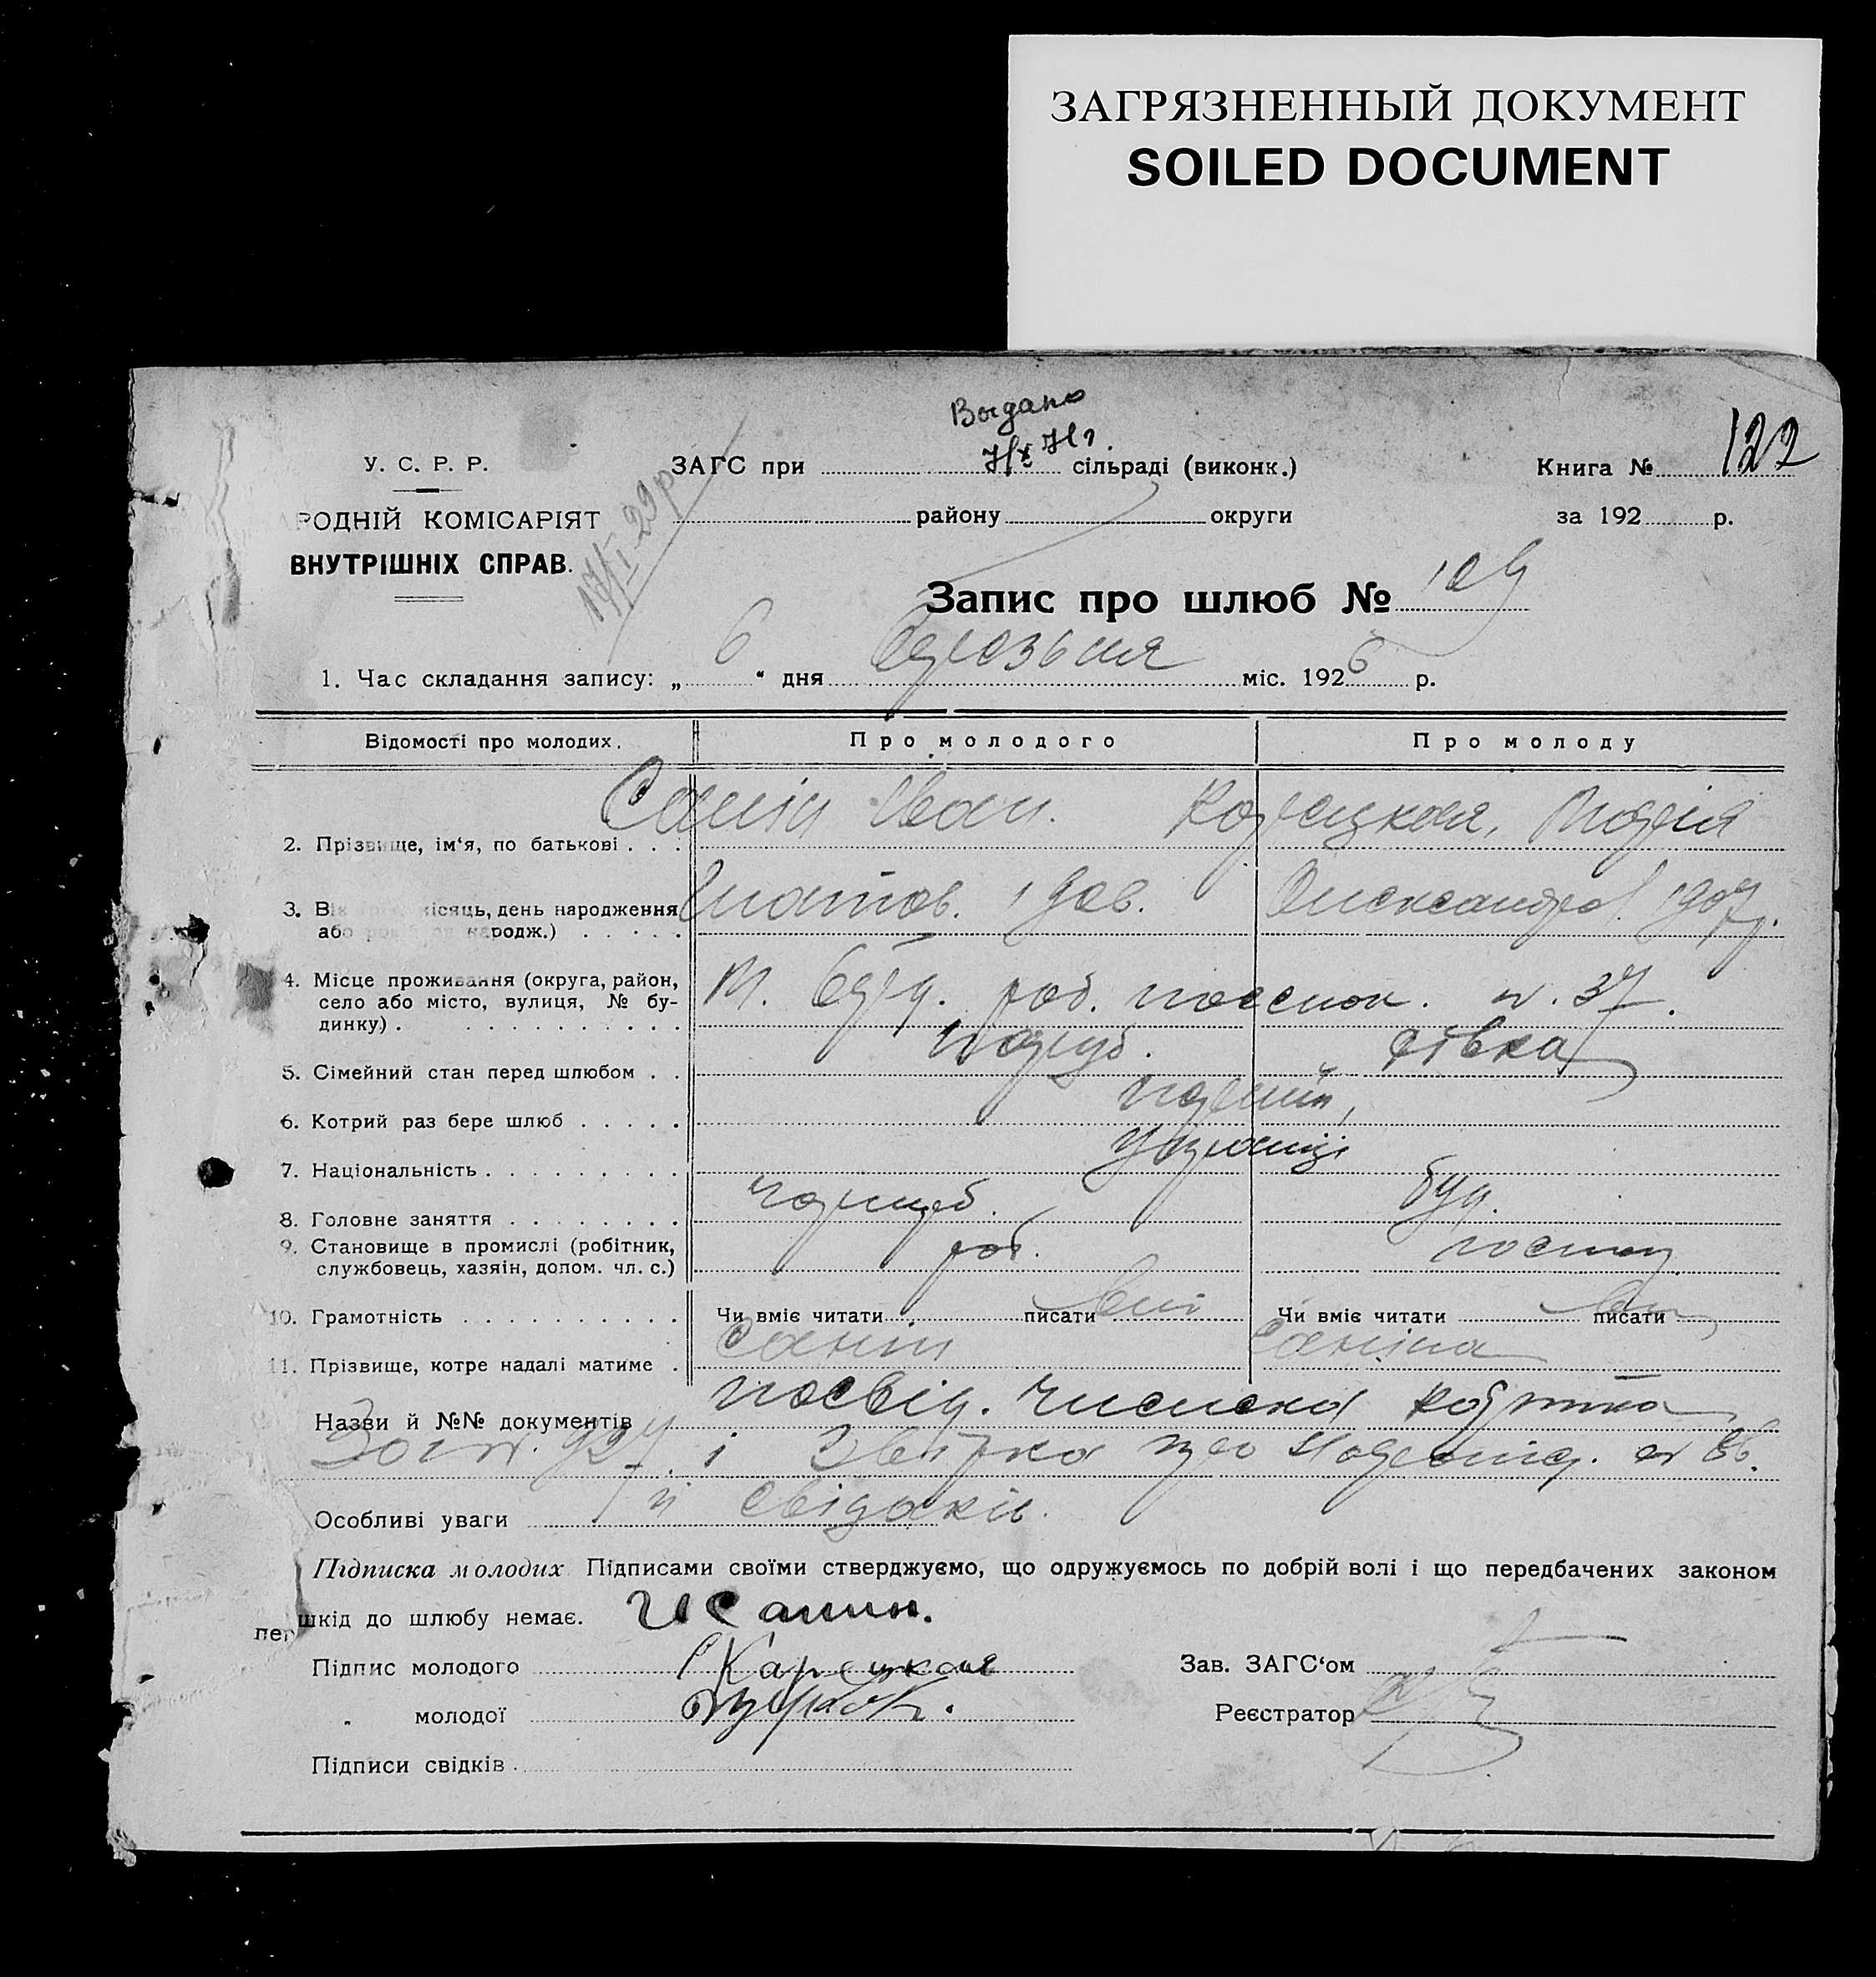 ЗАГРЯЗНЕННЫЙ ДОКУМЕНТ
SOILED DOCUMENT
Выдано
У. С. Р. Р.
ЗАГС при сільраді (виконк.)
Книга № 122
РОДНІЙ КОМІСАРІЯТ
району округи
за 192 р.
ВНУТРІШНІХ СПРАВ.
17/I 29 р
Запис про шлюб № 109
1. Час складання запису: „ 6 “ дня міс. 1926 р.
Відомості про молодих.
Про молодого
Про молоду
2. Прізвище, ім‘я, по батькові . . .
Санін Іван.
Карецкая, Марія
3. Вік місяць, день народження
або народж.) . . . . .
Ігнатов. 1906.
Олександров. 1907 р.
4. Місце проживання (округа, район,
село або місто, вулиця, № бу-
динку) . . . . . . . . . . .
роб. поселок. н. 37.
5. Сімейний стан перед шлюбом . .
паруб.
дівка
6. Котрий раз бере шлюб . . . . .
перший,
7. Національність . . . . . . . . .
українці
8. Головне заняття . . . . . . . .
чорнороб.
9. Становище в промислі (робітник,
службовець, хазяін, допом. чл. с.)
роб.
10. Грамотність . . . . . . . . . .
Чи вміє читати писати
Чи вміє читати писати
11. Прізвище, котре надалі матиме .
Санін
Саніна
Назви й №№ документів
посвід.
927 і
Особливі уваги
й свідаків.
Підписка молодих Підписами своїми стверджуємо, що одружуємось по добрій волі і що передбачених законом
пер шкід до шлюбу немає.
И Санин.
Підпис молодого
Карецкая
Зав. ЗАГС‘ом
„ молодої
Реєстратор
Підписи свідків